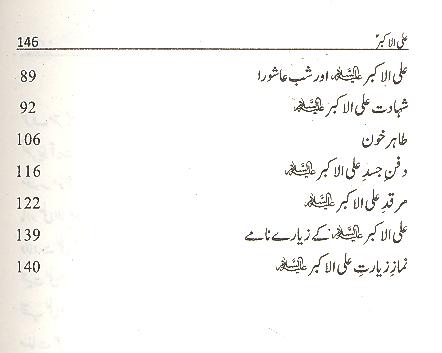 علی الاکبرؑ 146
علی الاکبر علیہ السلام اور شب عاشورا 89
شہادت علی الاکبر علیہ السلام 92
طاہر خون 106
دفنِ جسدِ علی الاکبر علیہ السلام 116
مرقدِ علی الاکبر علیہ السلام 122
علی الاکبر علیہ السلام کے زیارے نامے 139
نمازِ زیارتِ علی الاکبر علیہ السلام 140